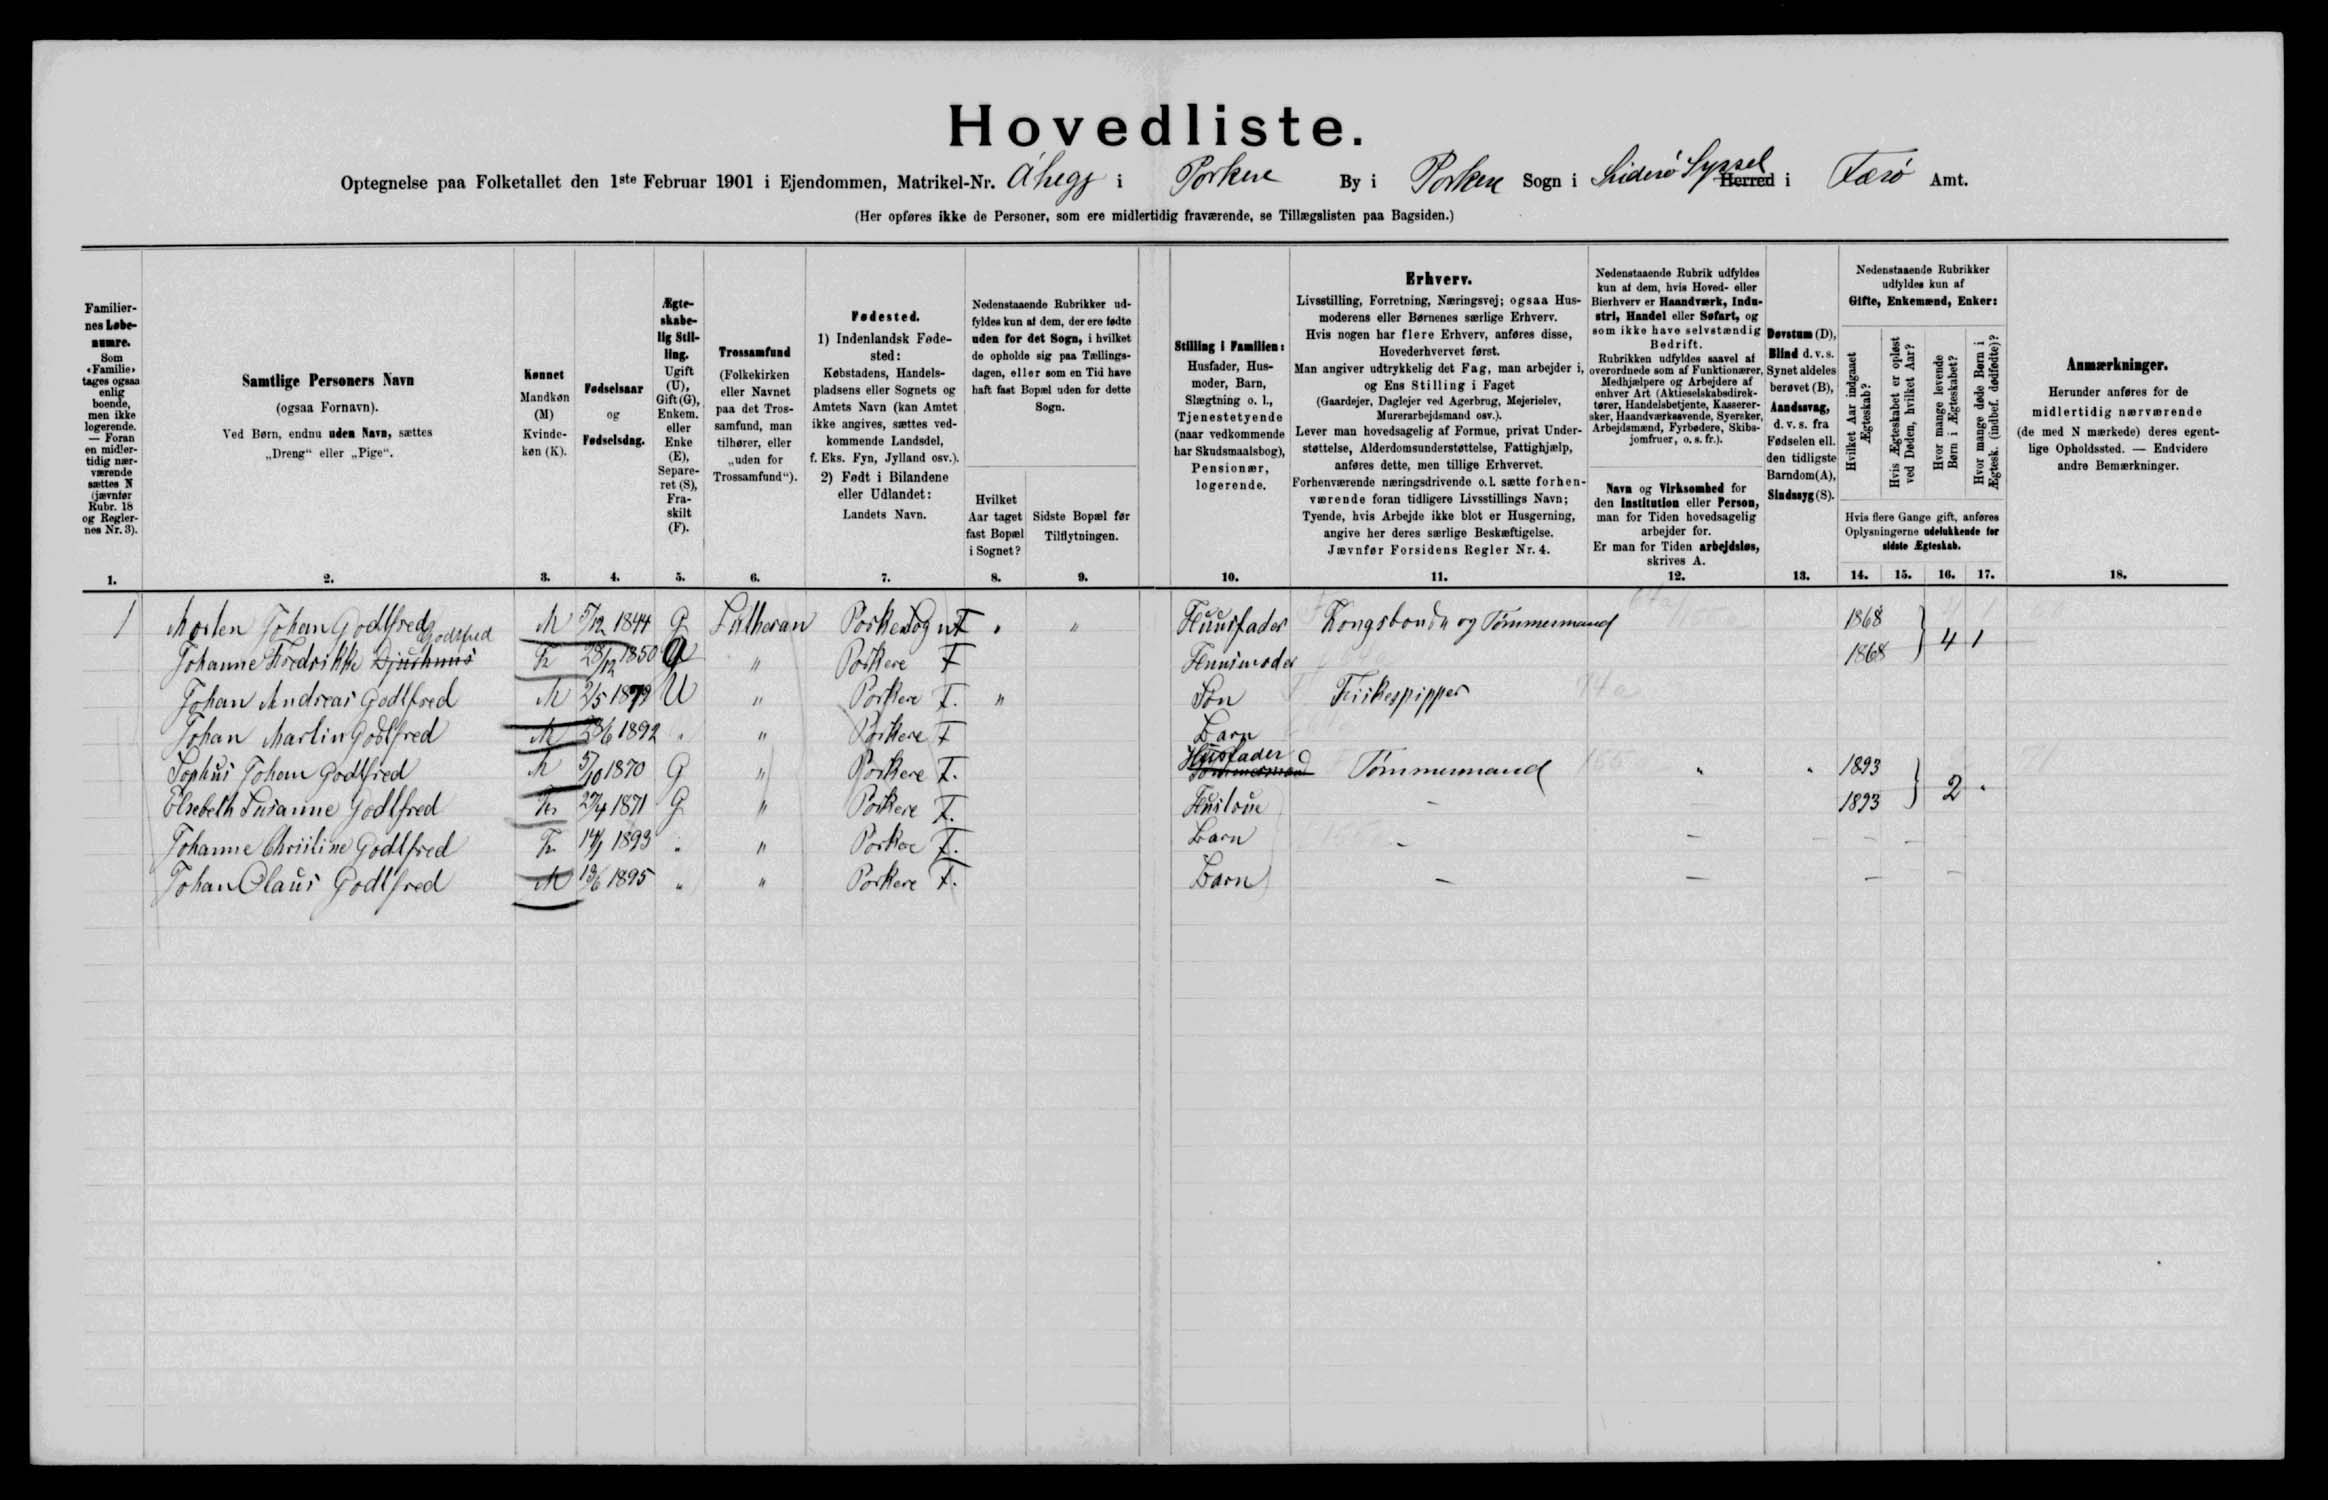 Hovedliste.
Optegnelse paa Folketallet den 1ste Februar 1901 i Ejendommen, Matrikel-Nr. Áhegg i Porkere By i Porkere Sogn i Suderö Syssel Herred i Færö Amt.
(Her opføres ikke de Personer, som ere midlertidig fraværende, se Tillægslisten paa Bagsiden.)
Familiernes Løbenumre.
Som «Familie» tages ogsaa enlig boende, men ikke logerende. — Foran en midlertidig nærværende sættes N (jævnfør Rubr. 18 og Reglernes Nr. 3).
1.
Samtlige Personers Navn
(ogsaa Fornavn).
Ved Børn, endnu uden Navn, sættes
„Dreng“ eller „Pige“.
2.
Kønnet
Mandkøn (M)
Kvindekøn (K).
3.
Fødselsaar
og
Fødselsdag.
4.
Ægteskabelig Stilling.
Ugift (U), Gift (G), Enkem. eller Enke (E), Separeret (S), Fraskilt (F).
5.
Trossamfund
(Folkekirken eller Navnet paa det Trossamfund, man tilhører, eller „uden for Trossamfund“).
6.
Fødested.
1) Indenlandsk Fødested:
Købstadens, Handelspladsens eller Sognets og Amtets Navn (kan Amtet ikke angives, sættes vedkommende Landsdel, f. Eks. Fyn, Jylland osv.).
2) Født i Bilandene eller Udlandet:
Landets Navn.
7.
Nedenstaaende Rubrikker udfyldes kun af dem, der ere fødte uden for det Sogn, i hvilket de opholde sig paa Tællingsdagen, eller som en Tid have haft fast Bopæl uden for dette Sogn.
Hvilket Aar taget fast Bopæl i Sognet?
8.
Sidste Bopæl før Tilflytningen.
9.
Stilling i Familien:
Husfader, Husmoder, Barn, Slægtning o. l., Tjenestetyende (naar vedkommende har Skudsmaalsbog), Pensionær, logerende.
10.
Erhverv.
Livsstilling, Forretning, Næringsvej; ogsaa Husmoderens eller Børnenes særlige Erhverv.
Hvis nogen har flere Erhverv, anføres disse, Hovederhvervet først.
Man angiver udtrykkelig det Fag, man arbejder i, og Ens Stilling i Faget
(Gaardejer, Daglejer ved Agerbrug, Mejerielev, Murerarbejdsmand osv.).
Lever man hovedsagelig af Formue, privat Understøttelse, Alderdomsunderstøttelse, Fattighjælp, anføres dette, men tillige Erhvervet.
Forhenværende næringsdrivende o. l. sætte forhenværende foran tidligere Livsstillings Navn;
Tyende, hvis Arbejde ikke blot er Husgerning, angive her deres særlige Beskæftigelse.
Jævnfør Forsidens Regler Nr. 4.
11.
Nedenstaaende Rubrik udfyldes kun af dem, hvis Hoved- eller Bierhverv er Haandværk, Industri, Handel eller Søfart, og som ikke have selvstændig Bedrift.
Rubrikken udfyldes saavel af overordnede som af Funktionærer, Medhjælpere og Arbejdere af enhver Art (Aktieselskabsdirektører, Handelsbetjente, Kasserersker, Haandværkssvende, Syersker, Arbejdsmænd, Fyrbødere, Skibsjomfruer, o. s. fr.).
Navn og Virksomhed for den Institution eller Person, man for Tiden hovedsagelig arbejder for.
Er man for Tiden arbejdsløs, skrives A.
12.
Døvstum (D), Blind d. v. s. Synet aldeles berøvet (B), Aandssvag, d. v. s. fra Fødselen ell. den tidligste Barndom (A), Sindssyg (S).
13.
Nedenstaaende Rubrikker udfyldes kun af
Gifte, Enkemænd, Enker:
Hvilket Aar indgaaet Ægteskab?
Hvis Ægteskabet er opløst ved Døden, hvilket Aar?
Hvor mange levende Børn i Ægteskabet?
Hvor mange døde Børn i Ægtesk. (indbef. dødfødte)?
Hvis flere Gange gift, anføres Oplysningerne udelukkende for sidste Ægteskab.
14. 15. 16. 17.
Anmærkninger.
Herunder anføres for de midlertidig nærværende (de med N mærkede) deres egentlige Opholdssted. — Endvidere andre Bemærkninger.
18.
1 Morten Johan Godtfred M 5/12 1844 G Lutheran Porkere Sogn F " " Huusfader Kongsbonde og Tømmermand 1868 4 1
Johanne Fredrikke Djurhuus Godtfred K 28/12 1850 G " Porkere F Huusmoder 1868
Johan Andreas Godtfred M 2/5 1879 U " Porkere F. " Søn Fiskespipper
Johan Martin Godtfred M 28/6 1892 " " Porkere F Barn
Sophus Johan Godtfred M 5/10 1870 G " Porkere F. Tømmermand Husfader Tømmermand " " 1893 2 "
Elsebeth Susanne Godtfred K 27/4 1871 G " Porkere F. Hustrue - 1893
Johanne Christine Godtfred K 14/1 1893 " " Porkere F. Barn - - - - -
Johan Claus Godtfred M 19/6 1895 " " Porkere F. Barn - - - -